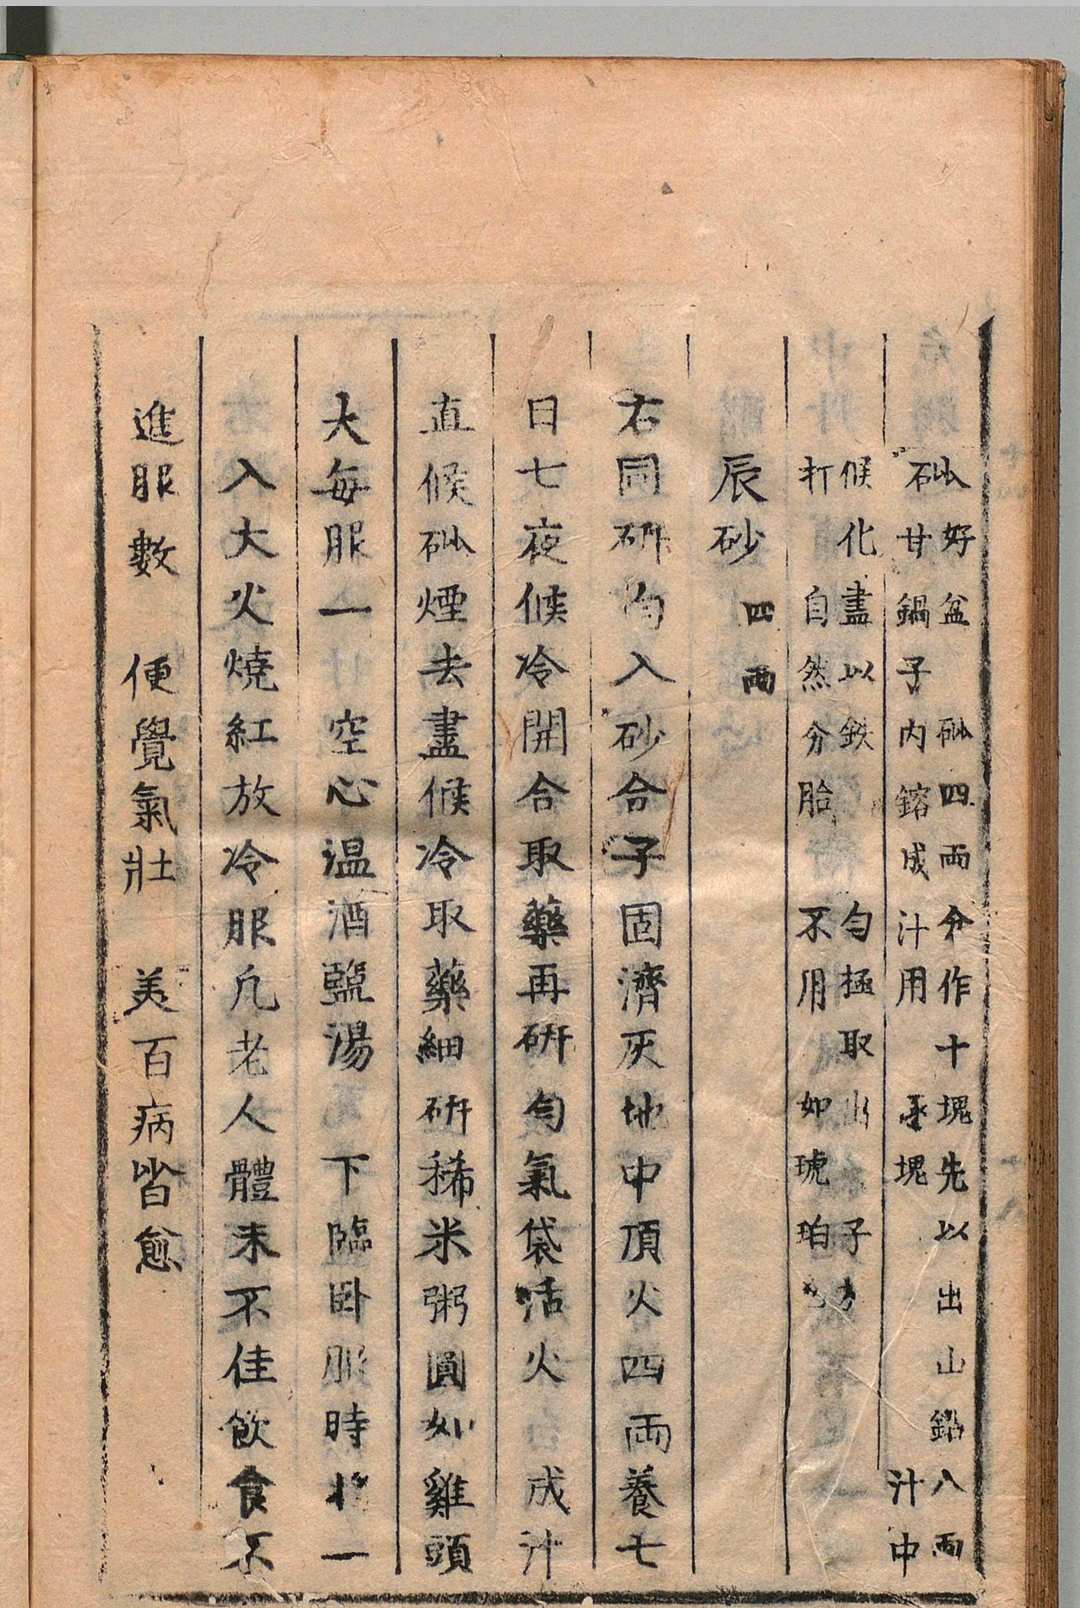 砒
好盆砒四兩分作十塊先以出山鉛八兩
甘鍋子内鎔成汁用 塊 汁中
候化盡以鉄 匀極取出 子
打 自然分胎 不用如琥珀
辰砂四兩
右同研匀入砂合子固濟灰地中頂火四兩養七
日七夜候冷開合取藥再研匀氣袋活火 成汁
直候砒煙去盡候冷取藥細研稀米粥圓如雞頭
大每服一 空心温酒鹽湯 下臨卧服時 一
入大火燒紅放冷服凡老人體末不佳飲食不
進服數 便覺氣壯 美百病皆愈